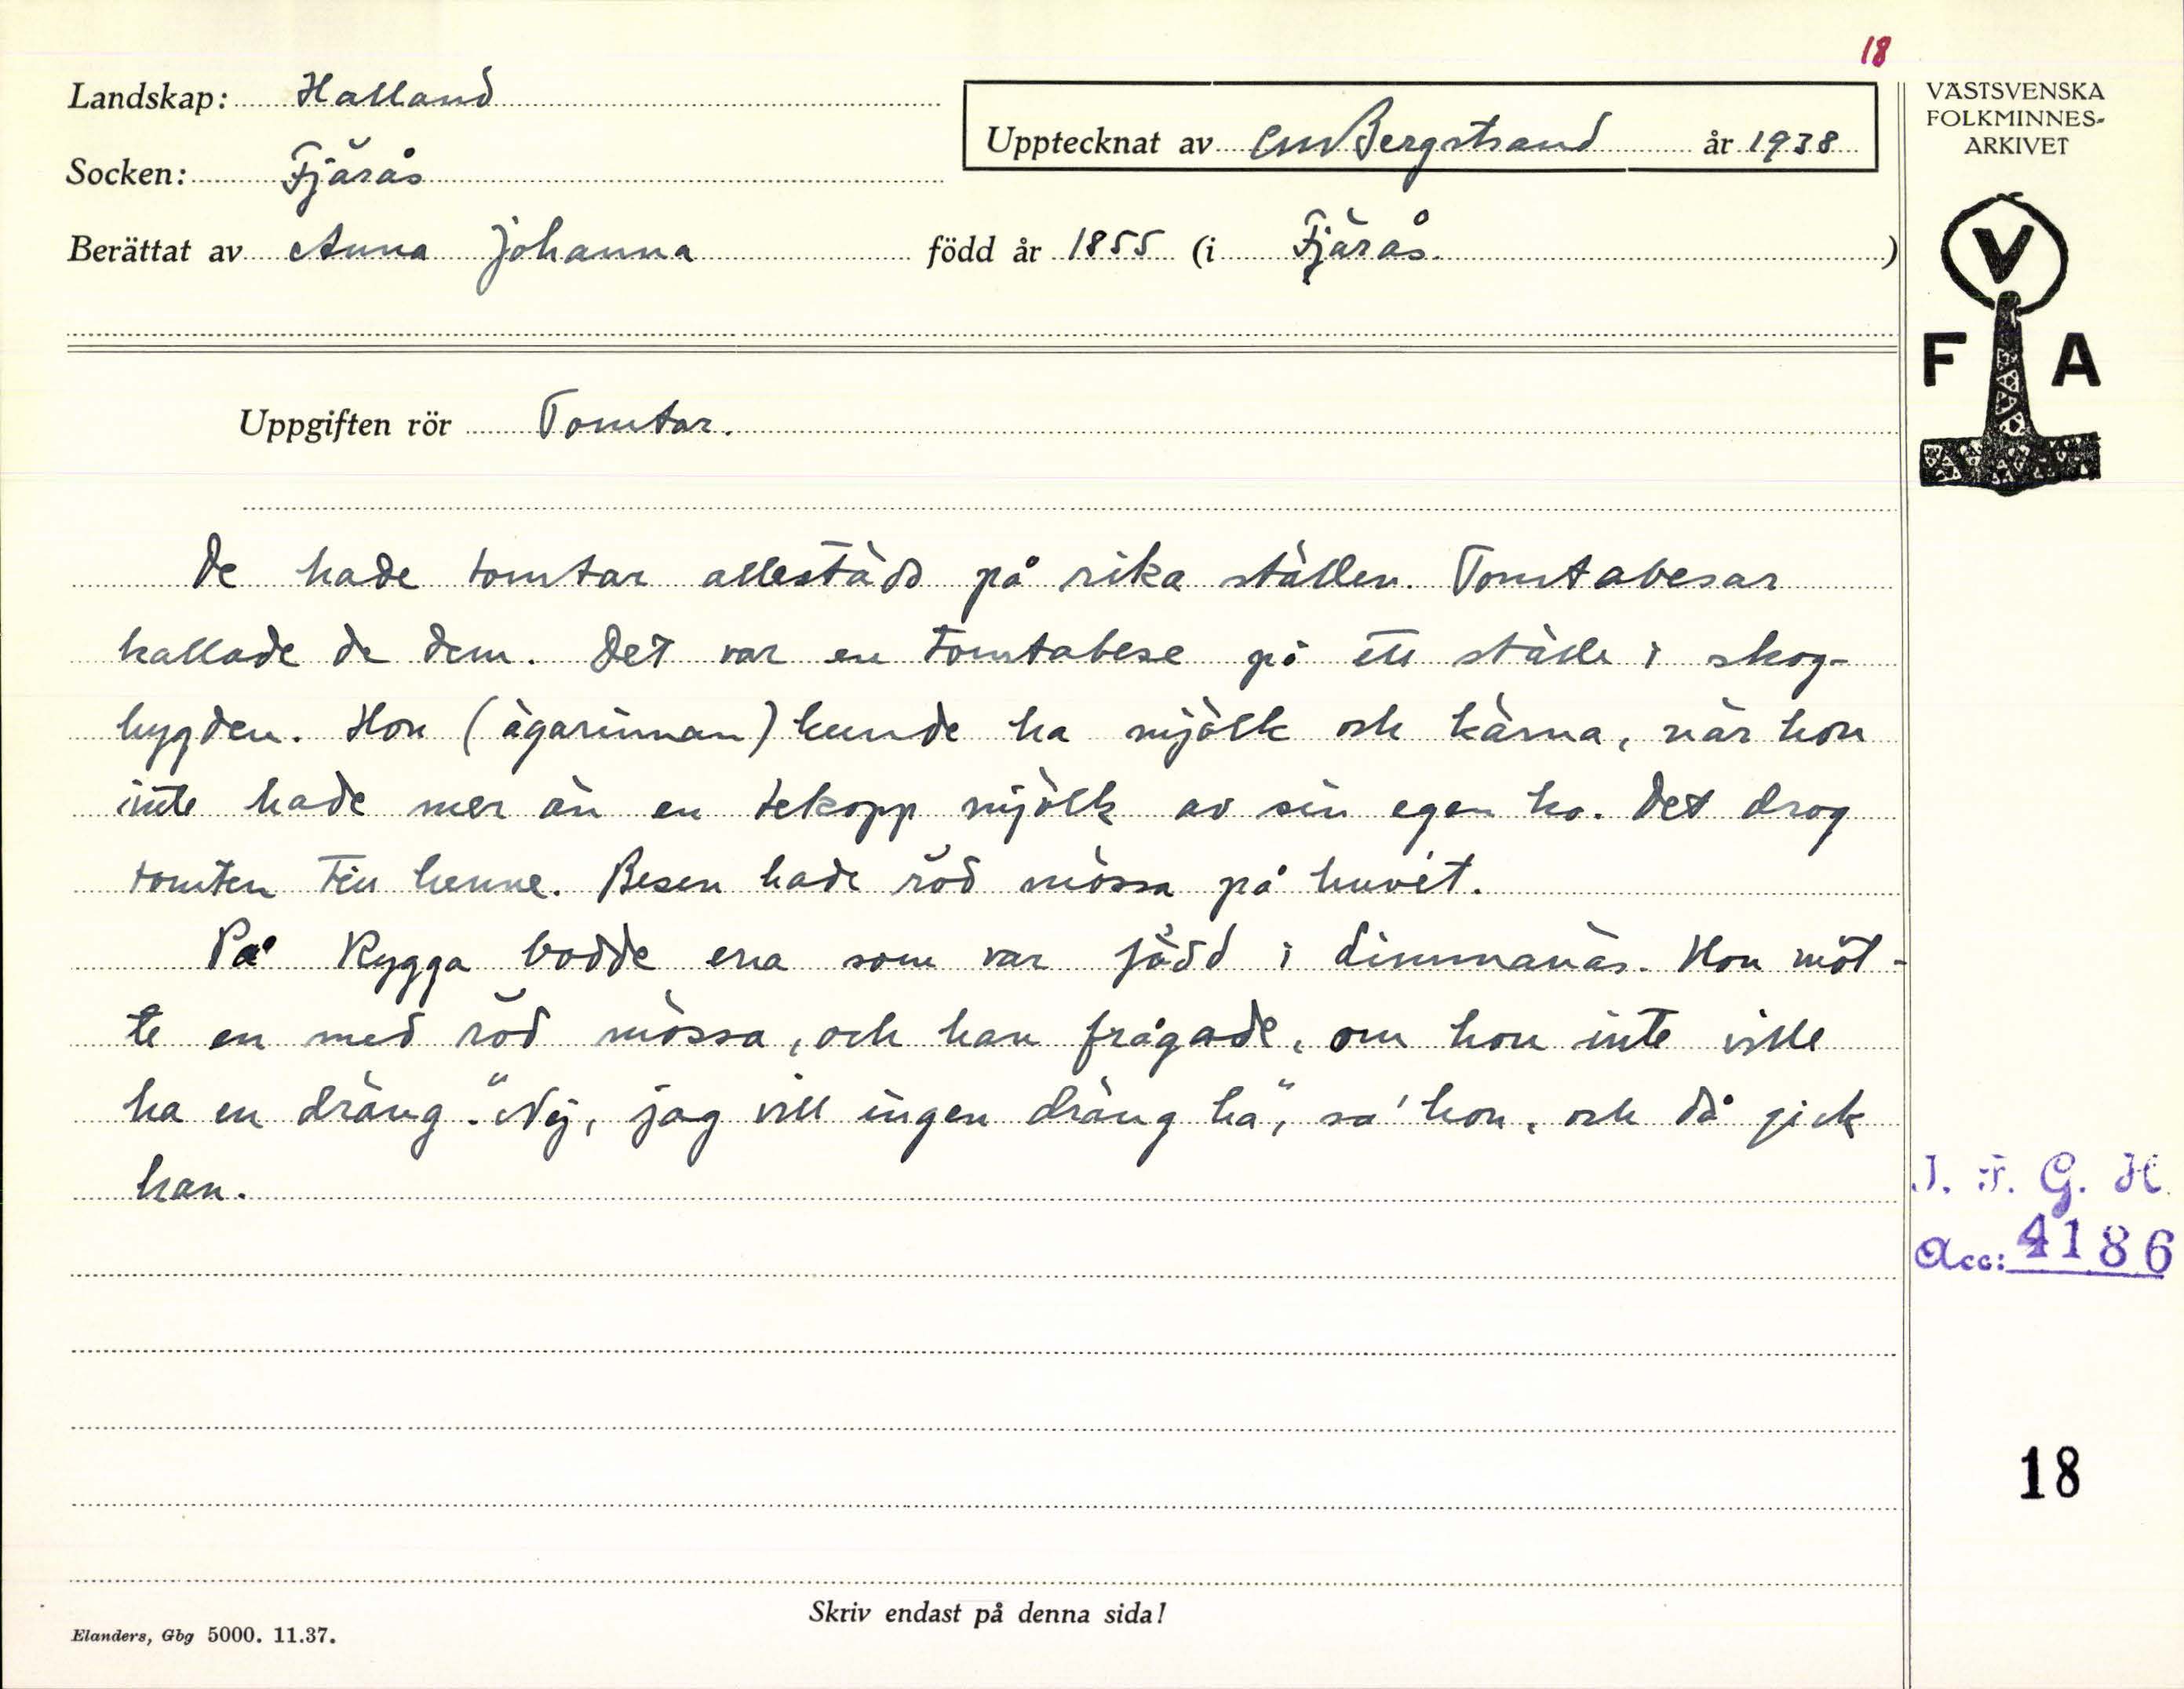 18
Landskap: Halland
Upptecknat av CM Bergstrand år 1938
VÄSTSVENSKA
FOLKMINNES-
ARKIVET
Socken: Fjärås
Berättat av Anna Johanna född år 1855 (i Fjärås.)
V
F A
Uppgiften rör Tomtar.
De hade tomtar allestäds på rika ställen. Tomtabesar
kallade de dem. Det var en tomtabese på ett ställe i skog-
bygden. Hon (ägarinnan) kunde ha mjölk och kärna, när hon
inte hade mer än en tekopp mjölk av sin egen ko. Det drog
tomten till henne. Besen hade röd mössa på huvet.
På Rygga bodde ena som var född i Limmanäs. Hon möt-
te en med röd mössa, och han frågade, om hon inte ville
ha en dräng. "Nej, jag vill ingen dräng ha", sa' hon, och då gick
han.
I. F. G. H.
Acc: 4186
18
Skriv endast på denna sida!
Elanders, Gbg 5000. 11.37.